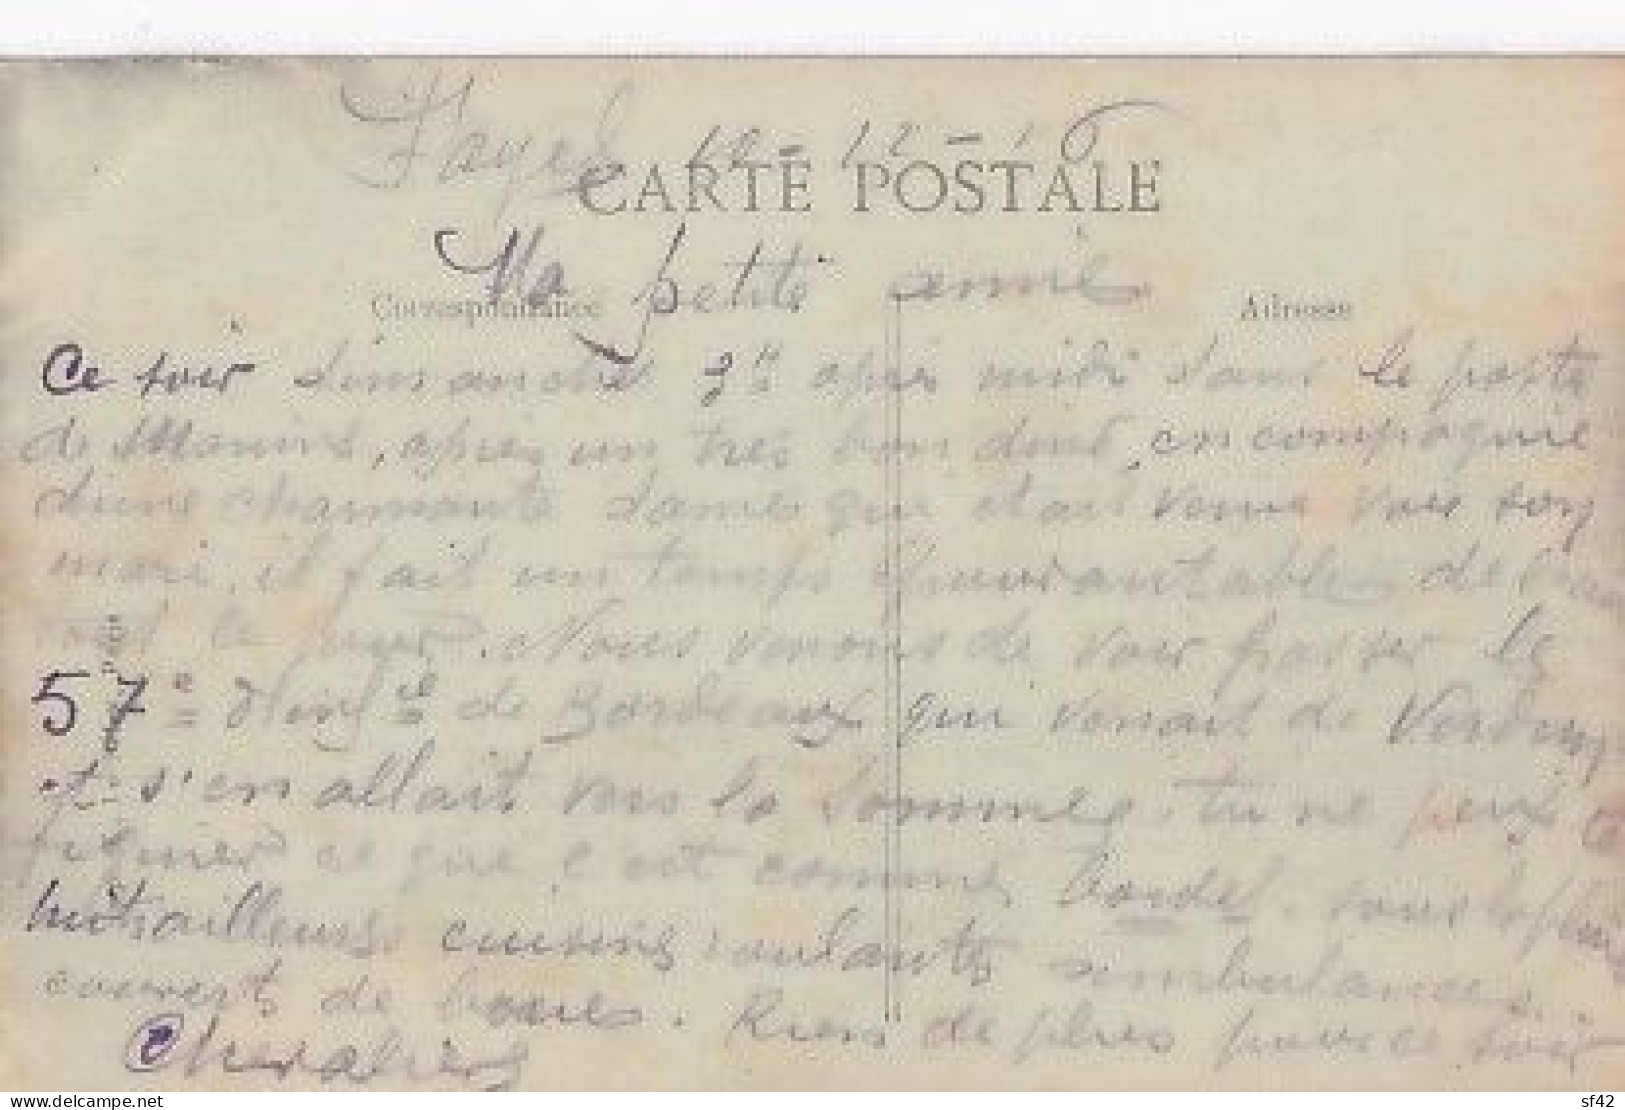 12-16
CARTE POSTALE
Ma petite amie
Correspondance Adresse
Ce soir dimanche 3h après midi dans le poste
de , après un très bon diné, en compagnie
d'une charmante dames qui etais venue voir son
mari, il fait un temps de
ce jour. Nous venons de voir passer le
57e d'infrie de Bordeaux qui venait de Verdun
et s'en allait vers la Somme. tu ne peux te
figurer ce que c'est comme bordel. sous la pluie
mitrailleuses cuisine roulantes ambulances
couverts de boues. Rien de plus pour ce soir
Chevaliers
delcampe.net
sf42